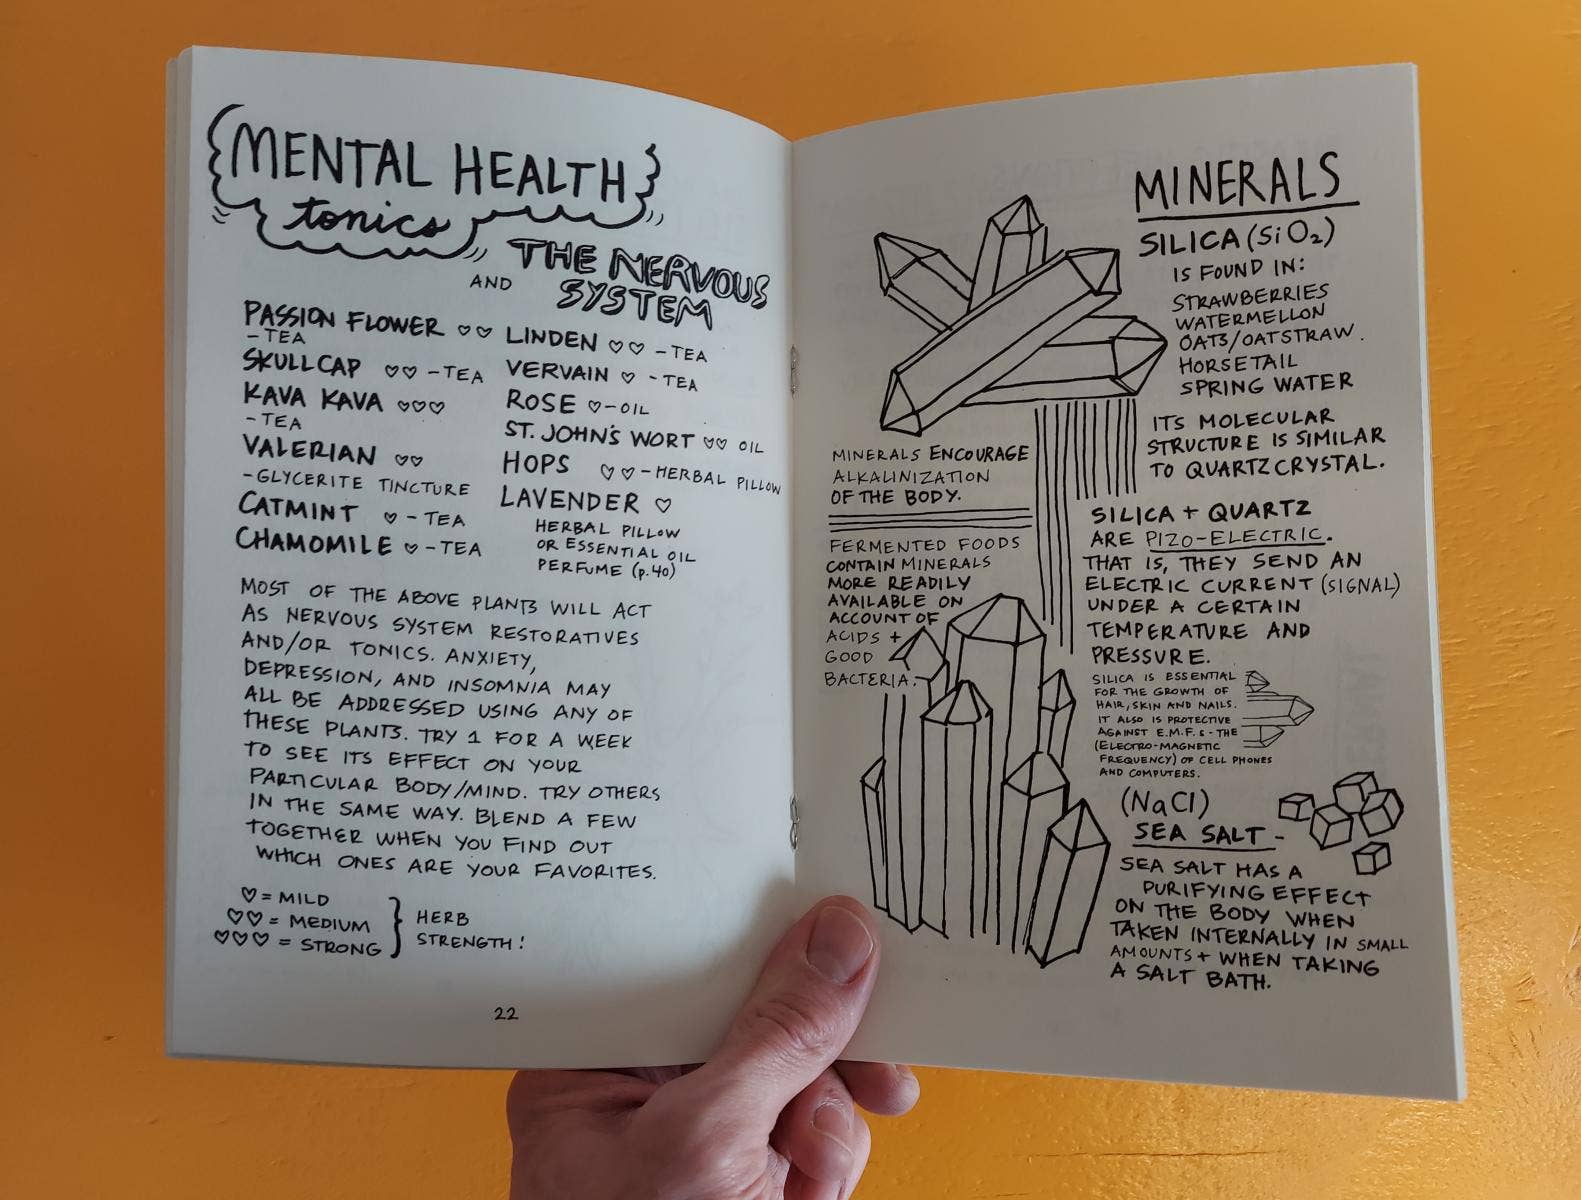 MENTAL HEALTH
tonics
AND THE NERVOUS
SYSTEM
PASSION FLOWER ♡♡
- TEA
SKULLCAP ♡♡ - TEA
KAVA KAVA ♡♡♡
- TEA
VALERIAN ♡♡
- GLYCERITE TINCTURE
CATMINT ♡ - TEA
CHAMOMILE ♡ - TEA
LINDEN ♡♡ - TEA
VERVAIN ♡ - TEA
ROSE ♡ - OIL
ST. JOHN'S WORT ♡♡ OIL
HOPS ♡♡ - HERBAL PILLOW
LAVENDER ♡
HERBAL PILLOW
OR ESSENTIAL OIL
PERFUME (p.40)
MOST OF THE ABOVE PLANTS WILL ACT
AS NERVOUS SYSTEM RESTORATIVES
AND/OR TONICS. ANXIETY,
DEPRESSION, AND INSOMNIA MAY
ALL BE ADDRESSED USING ANY OF
THESE PLANTS. TRY 1 FOR A WEEK
TO SEE ITS EFFECT ON YOUR
PARTICULAR BODY/MIND. TRY OTHERS
IN THE SAME WAY. BLEND A FEW
TOGETHER WHEN YOU FIND OUT
WHICH ONES ARE YOUR FAVORITES.
♡ = MILD
♡♡ = MEDIUM
♡♡♡ = STRONG
} HERB
STRENGTH!
22
MINERALS
SILICA (SiO₂)
IS FOUND IN:
STRAWBERRIES
WATERMELLON
OATS/OATSTRAW.
HORSETAIL
SPRING WATER
ITS MOLECULAR
STRUCTURE IS SIMILAR
TO QUARTZ CRYSTAL.
MINERALS ENCOURAGE
ALKALINIZATION
OF THE BODY.
FERMENTED FOODS
CONTAIN MINERALS
MORE READILY
AVAILABLE ON
ACCOUNT OF
ACIDS +
GOOD
BACTERIA.
SILICA + QUARTZ
ARE PIZO-ELECTRIC.
THAT IS, THEY SEND AN
ELECTRIC CURRENT (SIGNAL)
UNDER A CERTAIN
TEMPERATURE AND
PRESSURE.
SILICA IS ESSENTIAL
FOR THE GROWTH OF
HAIR, SKIN AND NAILS.
IT ALSO IS PROTECTIVE
AGAINST E.M.F.s - THE
(ELECTRO-MAGNETIC
FREQUENCY) OF CELL PHONES
AND COMPUTERS.
(NaCl)
SEA SALT -
SEA SALT HAS A
PURIFYING EFFECT
ON THE BODY WHEN
TAKEN INTERNALLY IN SMALL
AMOUNTS + WHEN TAKING
A SALT BATH.